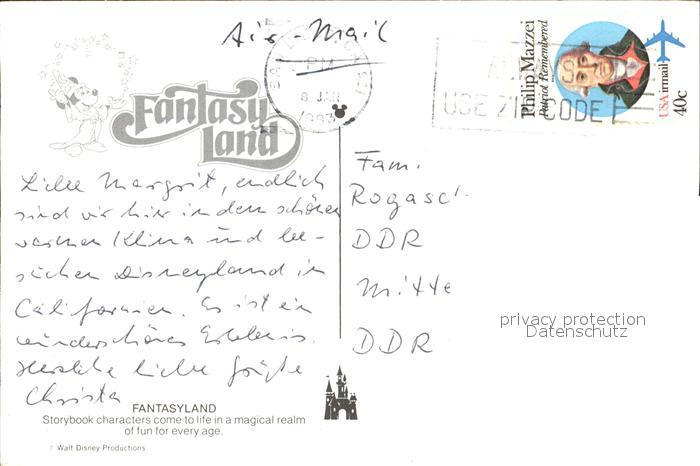 Air-Mail
PM
8 JAN
1983
USE ZIP CODE
Philip Mazzei
Patriot Remembered
USA airmail
40c
Fantasy
Land
Liebe Margrit, endlich
sind wir hier in dem schönen
warmen Klima und be-
suchen Disneyland in
Californien. Es ist ein
wunderschönes Erlebnis.
Herzliche liebe Grüße
Christa
Fam.
Rogasc
DDR
Mitte
DDR
privacy protection
Datenschutz
FANTASYLAND
Storybook characters come to life in a magical realm
of fun for every age.
Walt Disney Productions